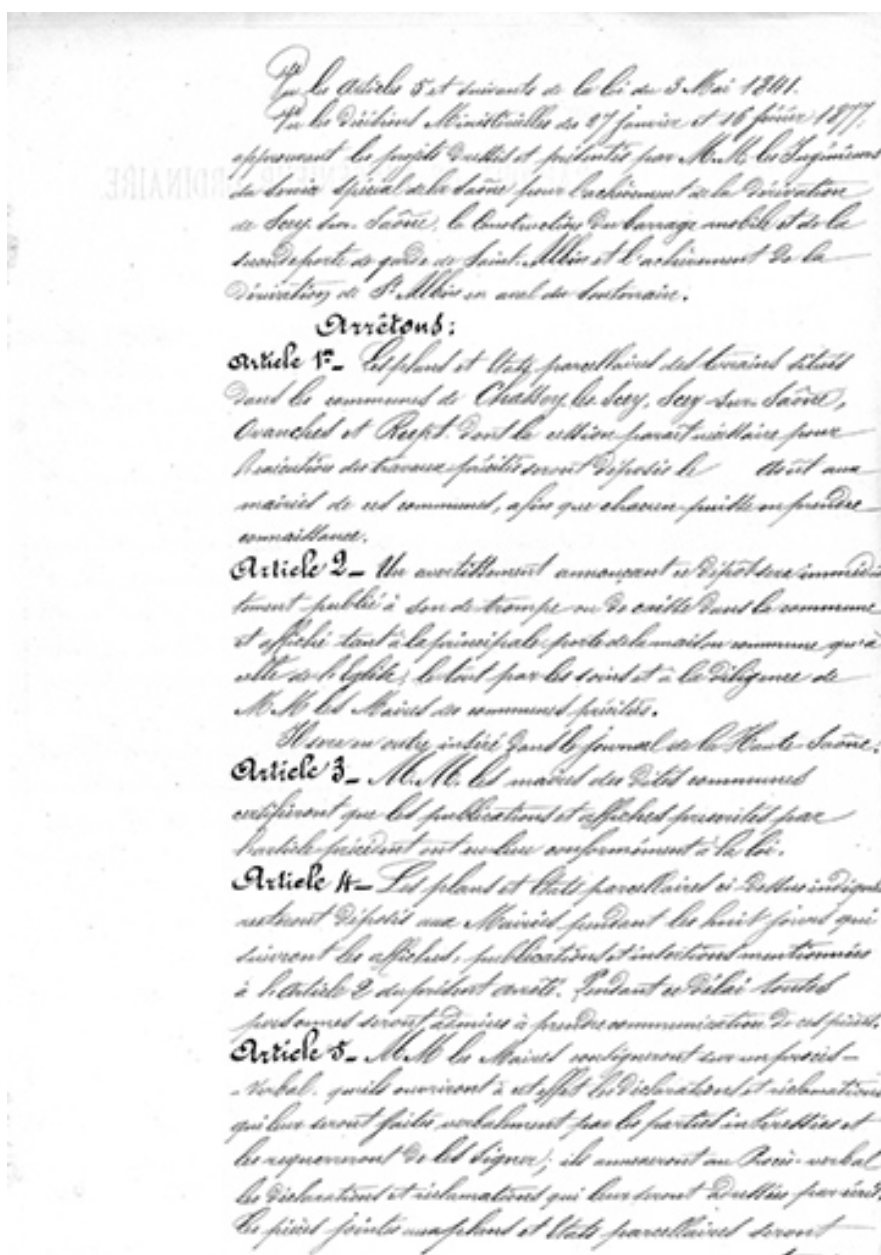 Vu les Articles 5 et suivants de la loi du 3 Mai 1841.
Vu les décisions Ministérielles des 27 janvier et 16 février 1877,
approuvant les projets dressés et présentés par M.M. les Ingénieurs
du service spécial de la Saône pour l'achèvement de la dérivation
de Scey-sur-Saône, la Construction du barrage mobile et de la
seconde porte de garde de Saint-Albin et l'achèvement de la
dérivation de St Albin en aval du souterrain.
Arrêtons:
Article 1er_ Les plans et Etats parcellaires des terrains situés
dans les communes de Chassey-les-Scey, Scey-sur-Saône,
Ovanches et Rupt. dont la cession paraît nécessaire pour
l'exécution des travaux précités seront déposés le août aux
mairies de ces communes, afin que chacun puisse en prendre
connaissance.
Article 2_ Un avertissement annonçant ce dépôt sera immédia
tement publié à son de trompe ou de caisse dans la commune
et affiché tant à la principale porte de la maison commune qu'à
celle de l'Eglise, le tout par les soins et à la diligence de
M.M. les Maires des communes précitées.
Il sera en outre inséré dans le journal de la Haute-Saône.
Article 3_ M.M. les maires des dites communes
certifieront que les publications et affiches prescrites par
l'article précédent ont eu lieu conformément à la loi.
Article 4_ Les plans et Etats parcellaires ci-dessus indiqués
resteront déposés aux Mairies pendant les huit jours qui
suivront les affiches, publications et insertions mentionnées
à l'Article 2 du présent arrêté. Pendant ce délai toutes
personnes seront admises à prendre communication de ces pièces.
Article 5_ M.M. les Maires consigneront sur un procès-
-verbal qu'ils ouvriront à cet effet les déclarations et réclamations
qui leur seront faites verbalement par les parties intéressées et
les requerreront de les signer; ils annexeront au Procès-verbal
les déclarations et réclamations qui leur seront adressées par écrit.
Les pièces jointes aux plans et Etats parcellaires seront